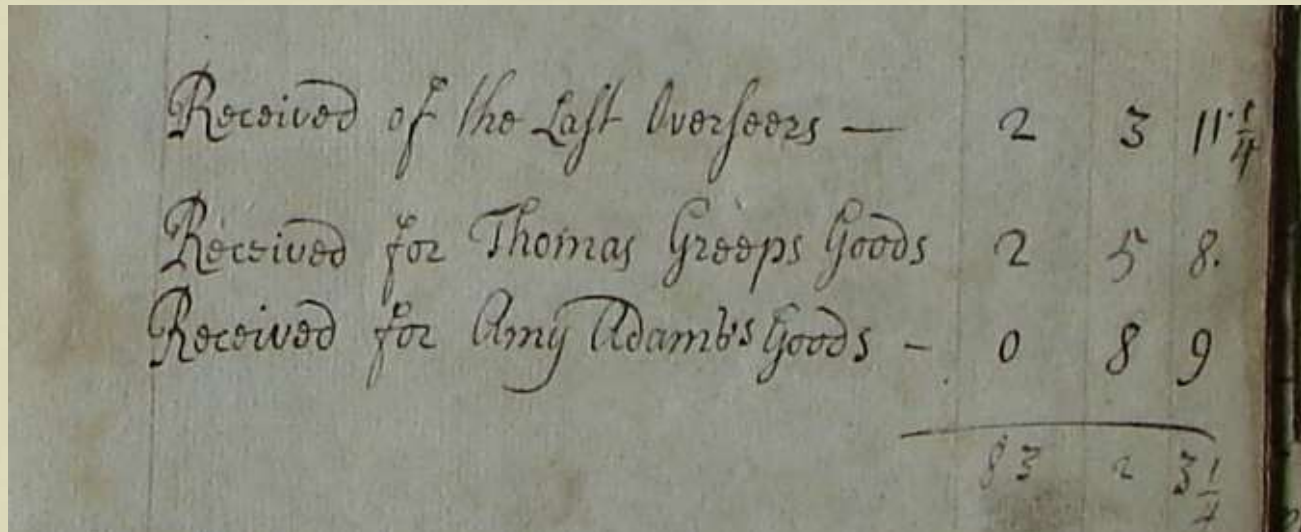 Received of the Last Overseers — 2 3 11 1/4
Received for Thomas Greeps Goods 2 5 8.
Received for Amy Adamb's Goods - 0 8 9
83 2 3 1/4